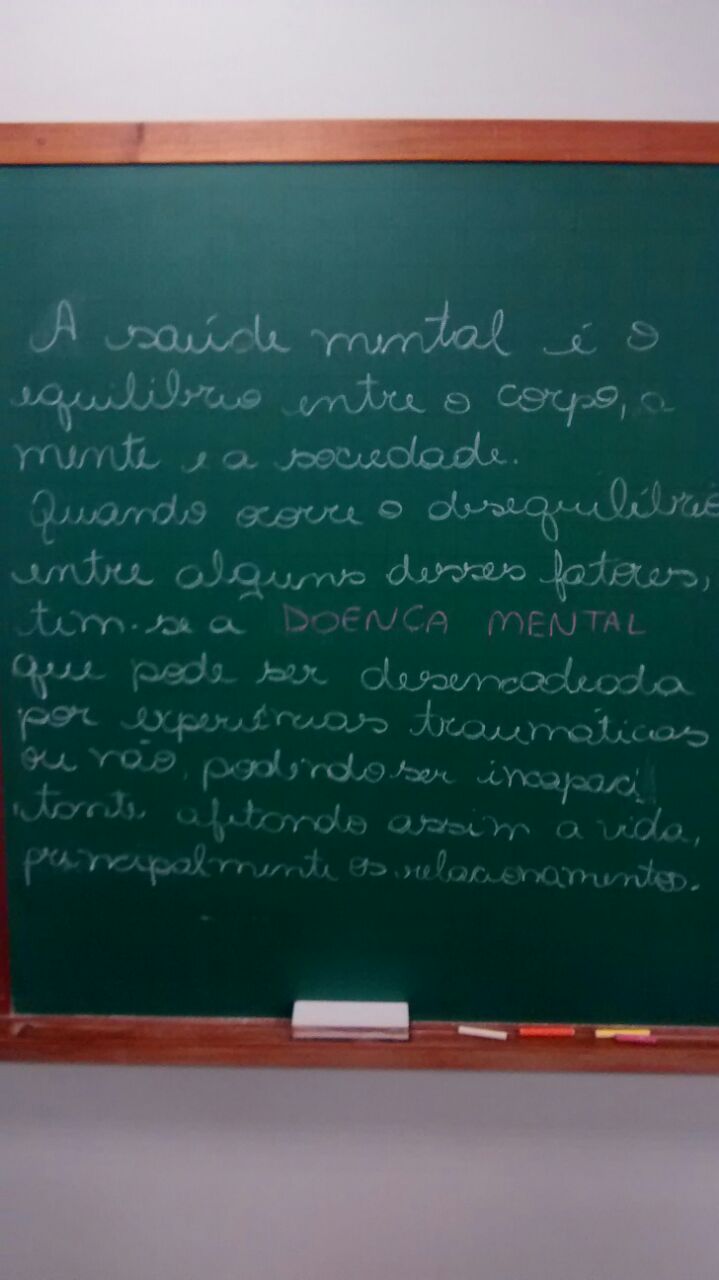 A saúde mental é o
equilíbrio entre o corpo, a
mente e a sociedade.
Quando ocorre o desequilíbrio
entre alguns desses fatores,
tem-se a DOENÇA MENTAL
que pode ser desencadeada
por experiências traumáticas
ou não, podendo ser incapaci
tante afetando assim a vida,
principalmente os relacionamentos.